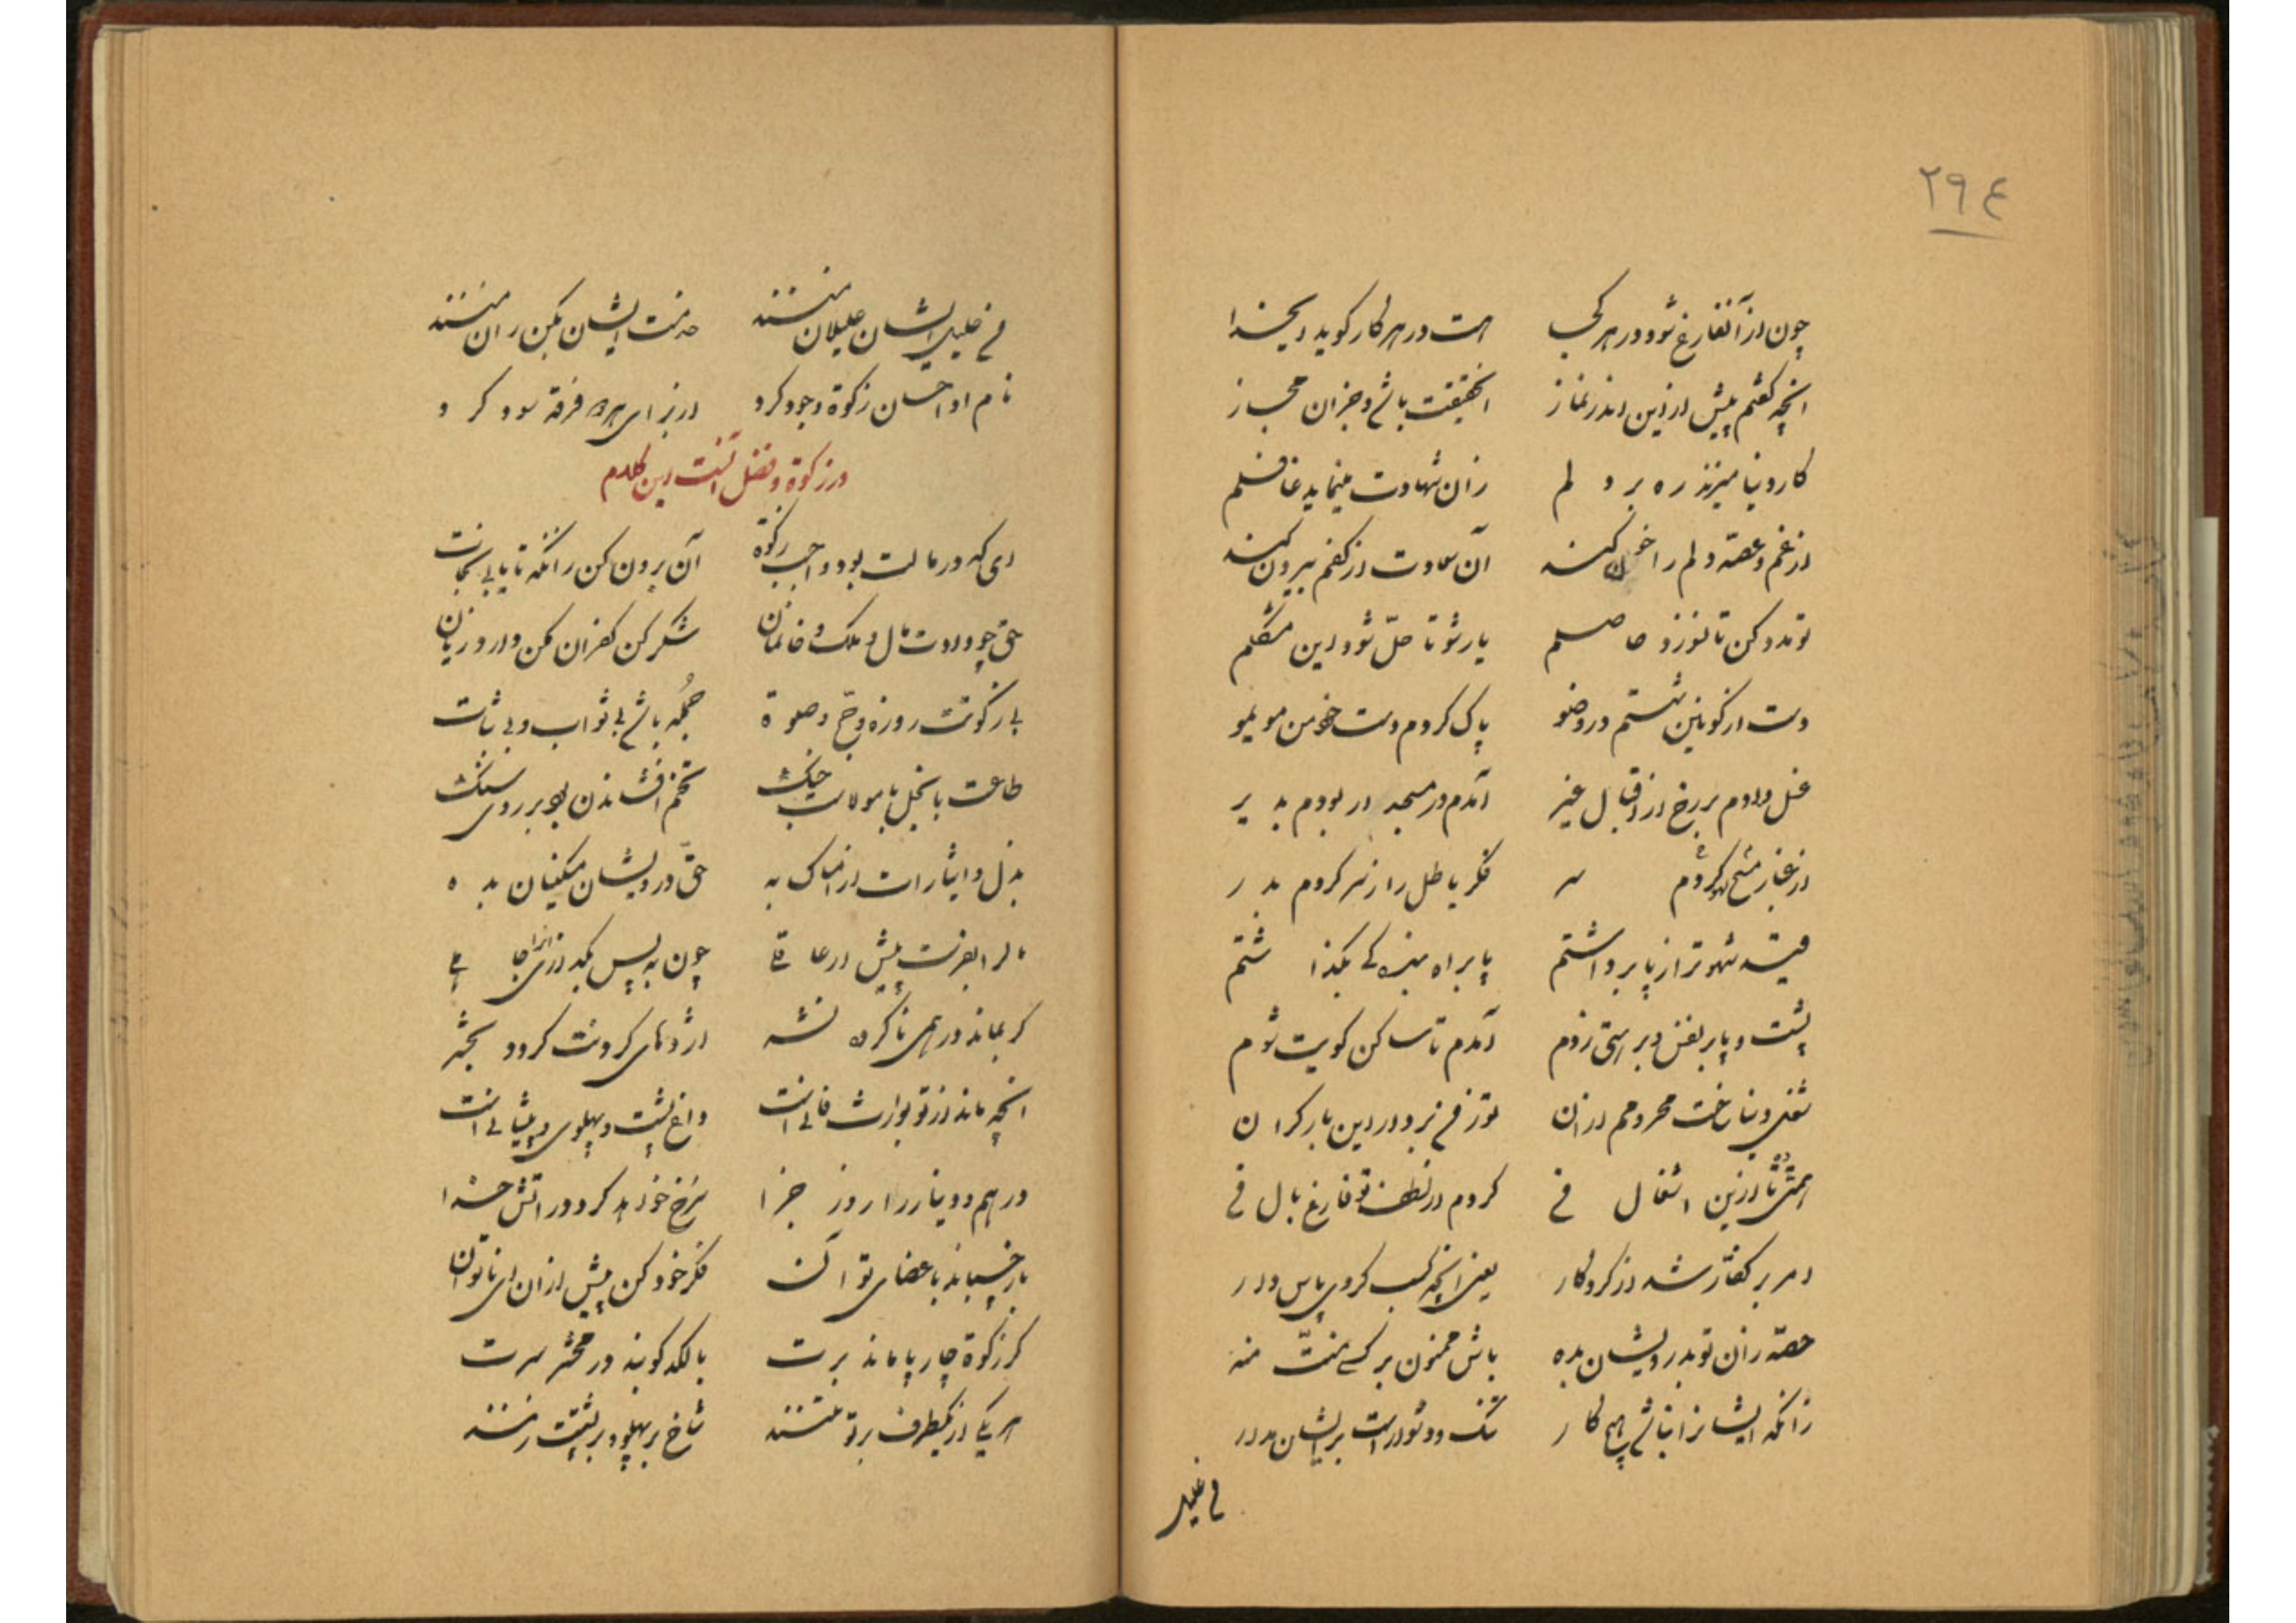 ۲۹۴
چون از آنفارغ شود در هر کجا است در هر کار گوید ایخدا
آنچه گفتم پیش ازین اندر نماز انحقیقت باشد و جز آن مجاز
کار دنیا میزند ره بر دلم زان شهادت مینماید غافلم
از غم و غصه دلم را خون کند آن سعادت از کفم بیرون کند
تو مدد کن تا نوزد حاصلم یار شو تا حلّ شود این مشکلم
دست از کونین شستم در وضو پاک کردم دست خود من مو بمو
غسل دادم بر رخ از اقبال غیر آمدم در مسجد ار بودم بدیر
از غبار مسح کردم سر فکر باطل را ز سر کردم بدر
قید شهوت را ز پا برداشتم پا براه بندگی بگذاشتم
پشت و پا بر نفس و بر هستی زدم آمدم تا ساکن کویت شوم
شغل دنیا ساخت محرومم از آن تو ز من بردار این بار گران
همتی تا از این اشغال من گردم از لطف تو فارغ بال من
امر بر کفّار شد از کردگار یعنی آنچه کسب کردی پاس دار
حصّه زان تو بدرویشان بده باش ممنون بر کسی منّت منه
زانکه ایشانرا نباشد هیچ کار تنگ و دشوار است بر ایشان مدار
نی خلیل
نی خلیل ایشان علیلان منند خدمت ایشان بکن زان منند
نام او احسان زکوة و جود کرد از برای بهره فرقه سود کرد
در زکوة و فضل آنست این کلام
ای که در مالت بود واجب زکوة آن برون کن زانکه تا یابی نجات
حق چو دادت مال و ملک و خانمان شکر کن کفران مکن دارد زیان
بی زکوتت روزه و حجّ و صلوة جمله باشد بی ثواب و بی ثبات
طاعت با بخل با مولات جنگ تخم افشاندن بود بر روی سنگ
بذل و ایثارات از امساک به حقّ درویشان مسکینان بده
مال را بفرست پیش ار عاقلی چون به پس
گر بماند در همی ناکرده نشر اژدهای گردنت گردد بحشر
آنچه ماند از تو بوارث فانی است داغ پشت و پهلوی و پیشانی است
درهم و دینار را روز جزا سرخ خواهد کرد در آتش خدا
باز چسباند باعضای تو آن فکر خود کن پیش از آن ای ناتوان
گر زکوة چارپا ماند برت با لگد کوبند در محشر سرت
هر یکی از یکطرف بر تو تنند شاخ بر پهلو و بر پشتت زنند